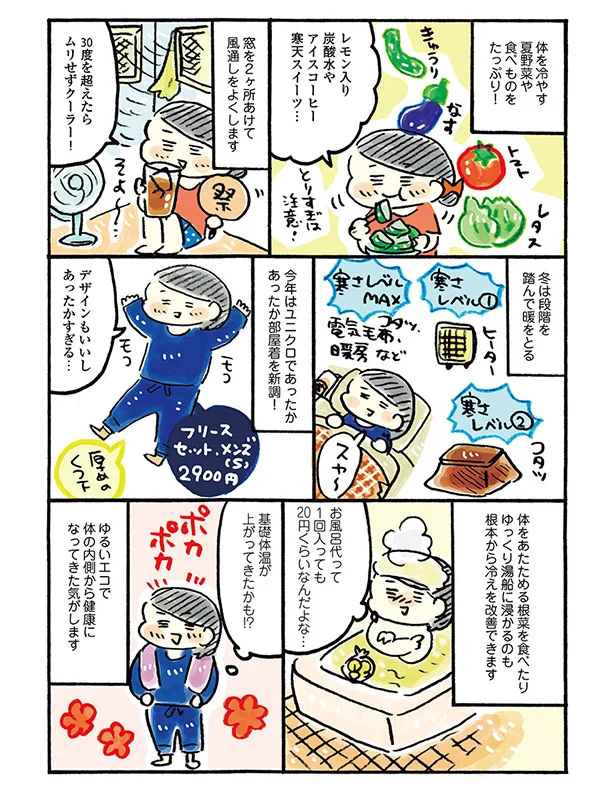 体を冷やす
夏野菜や
食べものを
たっぷり！
きゅうり
なす
トマト
レタス
レモン入り
炭酸水や
アイスコーヒー
寒天スイーツ…
とりすぎは
注意！
窓を2ヶ所あけて
風通しをよくします
30度を超えたら
ムリせずクーラー！
祭
そよ〜…
冬は段階を
踏んで暖をとる
寒さ
レベル①
ヒーター
寒さ
レベル②
コタツ
寒さレベル
MAX
コタツ、
電気毛布、
暖房 など
スヤ〜
今年はユニクロであったか
あったか部屋着を新調！
デザインもいいし
あったかすぎる…
モコ
モコ
フリース
セット・メンズ
(S)
2900円
厚めの
くつ下
体をあたためる根菜を食べたり
ゆっくり湯船に浸かるのも
根本から冷えを改善できます
お風呂代って
1回入っても
20円くらいなんだよな…
基礎体温が
上がってきたかも!?
ポカ
ポカ
ゆるいエコで
体の内側から健康に
なってきた気がします